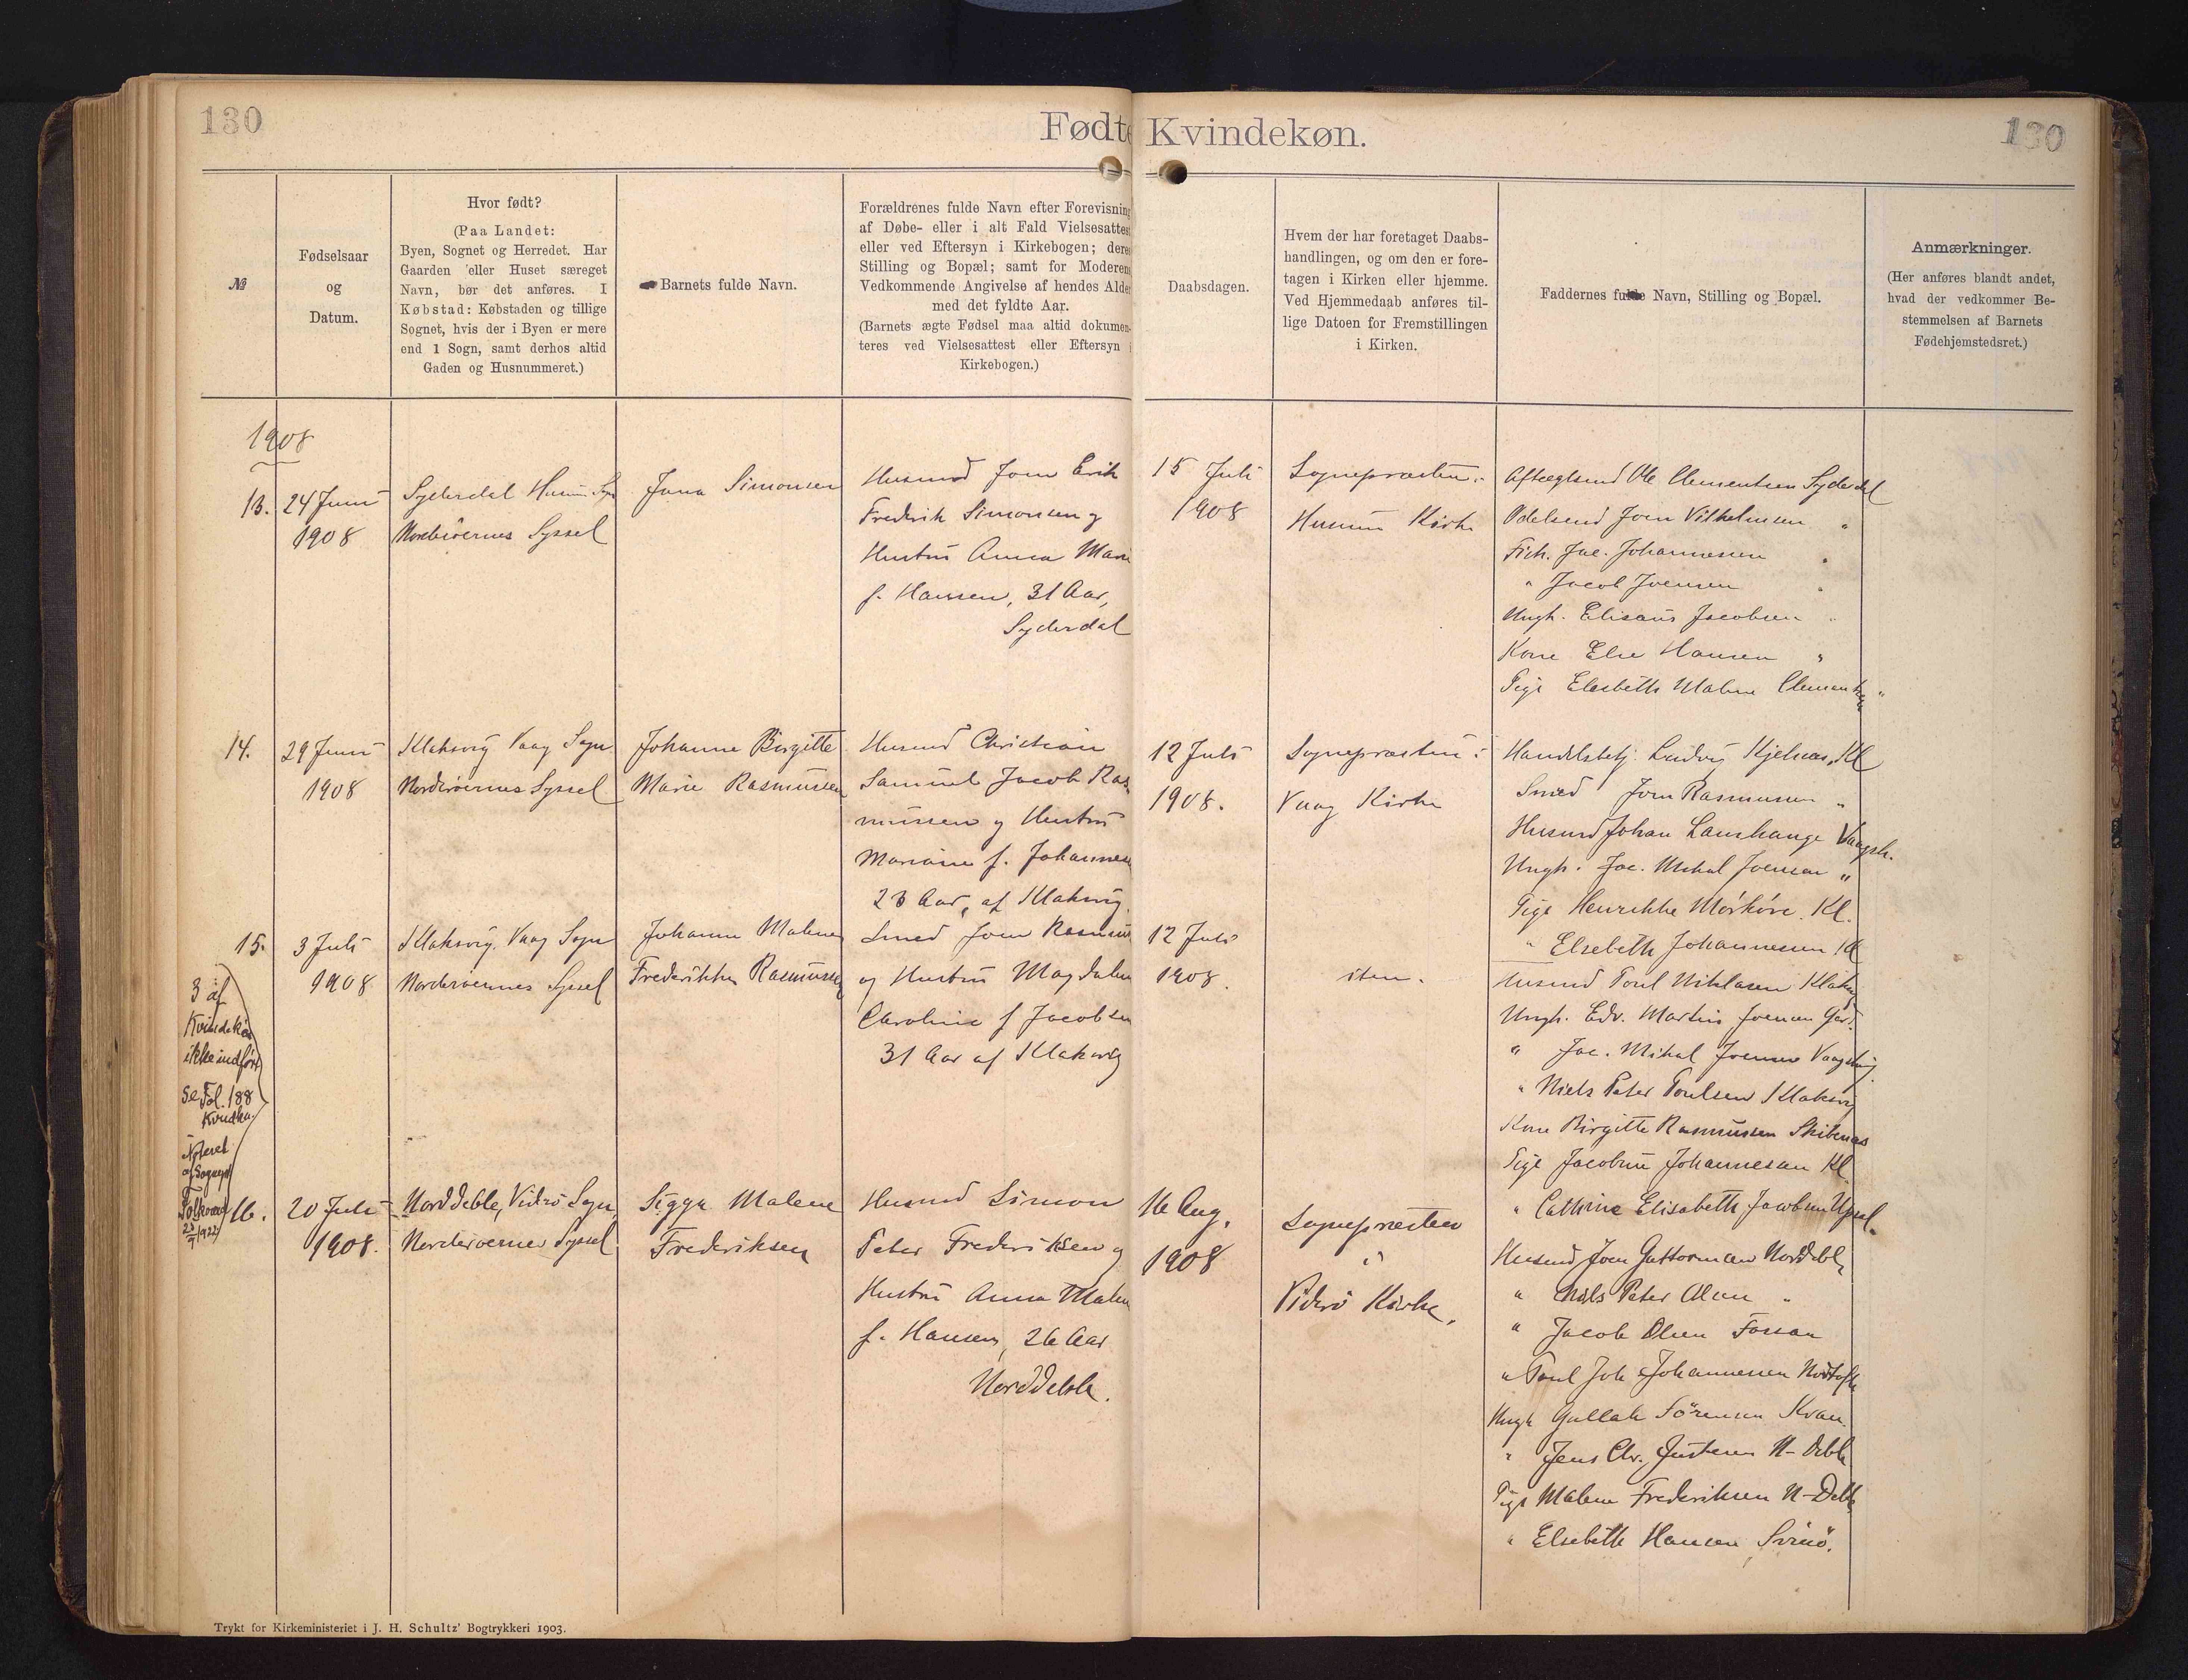 130
Fødte Kvindekøn.
130
№
Fødselsaar
og
Datum.
Hvor født?
(Paa Landet:
Byen, Sognet og Herredet. Har
Gaarden eller Huset særeget
Navn, bør det anføres. I
Købstad: Købstaden og tillige
Sognet, hvis der i Byen er mere
end 1 Sogn, samt derhos altid
Gaden og Husnummeret.)
Barnets fulde Navn.
Forældrenes fulde Navn efter Forevisning
af Døbe- eller i alt Fald Vielsesattest
eller ved Eftersyn i Kirkebogen; deres
Stilling og Bopæl; samt for Moderens
Vedkommende Angivelse af hendes Alder
med det fyldte Aar.
(Barnets ægte Fødsel maa altid dokumen-
teres ved Vielsesattest eller Eftersyn i
Kirkebogen.)
Daabsdagen.
Hvem der har foretaget Daabs-
handlingen, og om den er fore-
tagen i Kirken eller hjemme.
Ved Hjemmedaab anføres til-
lige Datoen for Fremstillingen
i Kirken.
Faddernes fulde Navn, Stilling og Bopæl.
Anmærkninger.
(Her anføres blandt andet,
hvad der vedkommer Be-
stemmelsen af Barnets
Fødehjemstedsret.)
1908
13.
24 Juni
1908
Syderdal Husum Sgn
Norderøernes Syssel
Juna Simonsen
Husmd Joen Erik
Frederik Simonsen og
Hustru Anna Marie
f. Hansen, 31 Aar,
Syderdal
15 Juli
1908
Sognepræsten i
Husum Kirke
Aftægtsmd Ole Clementsen Syderdal
Odelsmd Joen Vilhelmsen "
Fisk. Jac. Johannesen "
" Jacob Joensen "
Ungk. Elisæus Jacobsen "
Kone Else Hansen "
Pige Elsebeth Malene Clementsen "
14.
29 Juni
1908
Klaksvig Vaag Sogn
Norderøernes Syssel
Johanne Birgitte
Marie Rasmussen
Husmd Christian
Samuel Jacob Ras
mussen og Hustru
Mariane f. Johannesen
23 Aar, af Klaksvig.
12 Juli
1908.
Sognepræsten i
Vaag Kirke
Handelsbetj. Ludvig Kjelnæs, Kl
Smed Joen Rasmussen "
Husmd Johan Lamhauge Vaagsb.
Ungk. Jac. Mikal Joensen "
Pige Henrikke Mørkøre. Kl.
" Elsebeth Johannesen Kl
15.
3 Juli
1908
Klaksvig. Vaag Sogn
Norderøernes Syssel
Johanne Malene
Frederikke Rasmussen
Smed Joen Rasmussen
og Hustru Magdalene
Caroline f Jacobsen
31 Aar af Klaksvig
12 Juli
1908.
item.
Husmd Poul Niklasen Klaksv
Ungk. Edv. Martin Joensen Gerd.
" Jac. Mikal Joensen Vaagsbyg
" Niels Peter Poulsen Klaksvig
Kone Birgitte Rasmussen Skibenæs
Pige Jacobine Johannesen Kl
" Cathrine Elisabeth Jacobsen Upsal.
3 af
Kvindekøn
ikke indført
Se Fol. 188
Kvindkø.
Noteret
af Sognepr
23/9 1922
16.
20 Juli
1908.
Norddeble, Viderø Sogn
Norderøernes Syssel
Sigga Malene
Frederiksen
Husmd Simon
Peter Frederiksen og
Hustru Anna Malene
f. Hansen, 26 Aar
Norddeble.
16 Aug.
1908
Sognepræsten
i
Viderø Kirke.
Husmd Joen Guttormsen Norddeble
" Niels Peter Olsen "
" Jacob Olsen Fossan
" Poul Joh Johannesen Nordtofte
Ungk Gullak Sørensen Kvan.
" Jens Chr. Justesen N-Deble
Pige Malene Frederiksen N-Deble
" Elsebeth Hansen, Svinø.
Trykt for Kirkeministeriet i J. H. Schultz' Bogtrykkeri 1903.